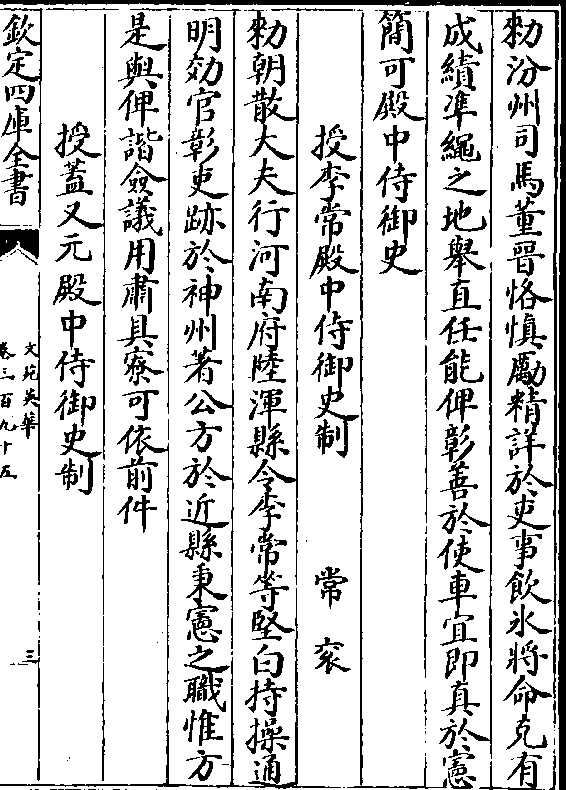 勑汾州司馬董晉恪慎勵精詳於吏事飲氷將命克有
成績凖繩之地舉直任能俾彰善於使車宜即真於憲
簡可殿中侍御史
授李常殿中侍御史制 常衮
勑朝散大夫行河南府陸渾縣令李常等堅白持操通
明効官彰吏跡於神州著公方於近縣秉憲之職惟方
是與俾諧僉議用肅具寮可依前件
授蓋又元殿中侍御史制
欽定四庫全書
文苑英華
卷三百九十五
三